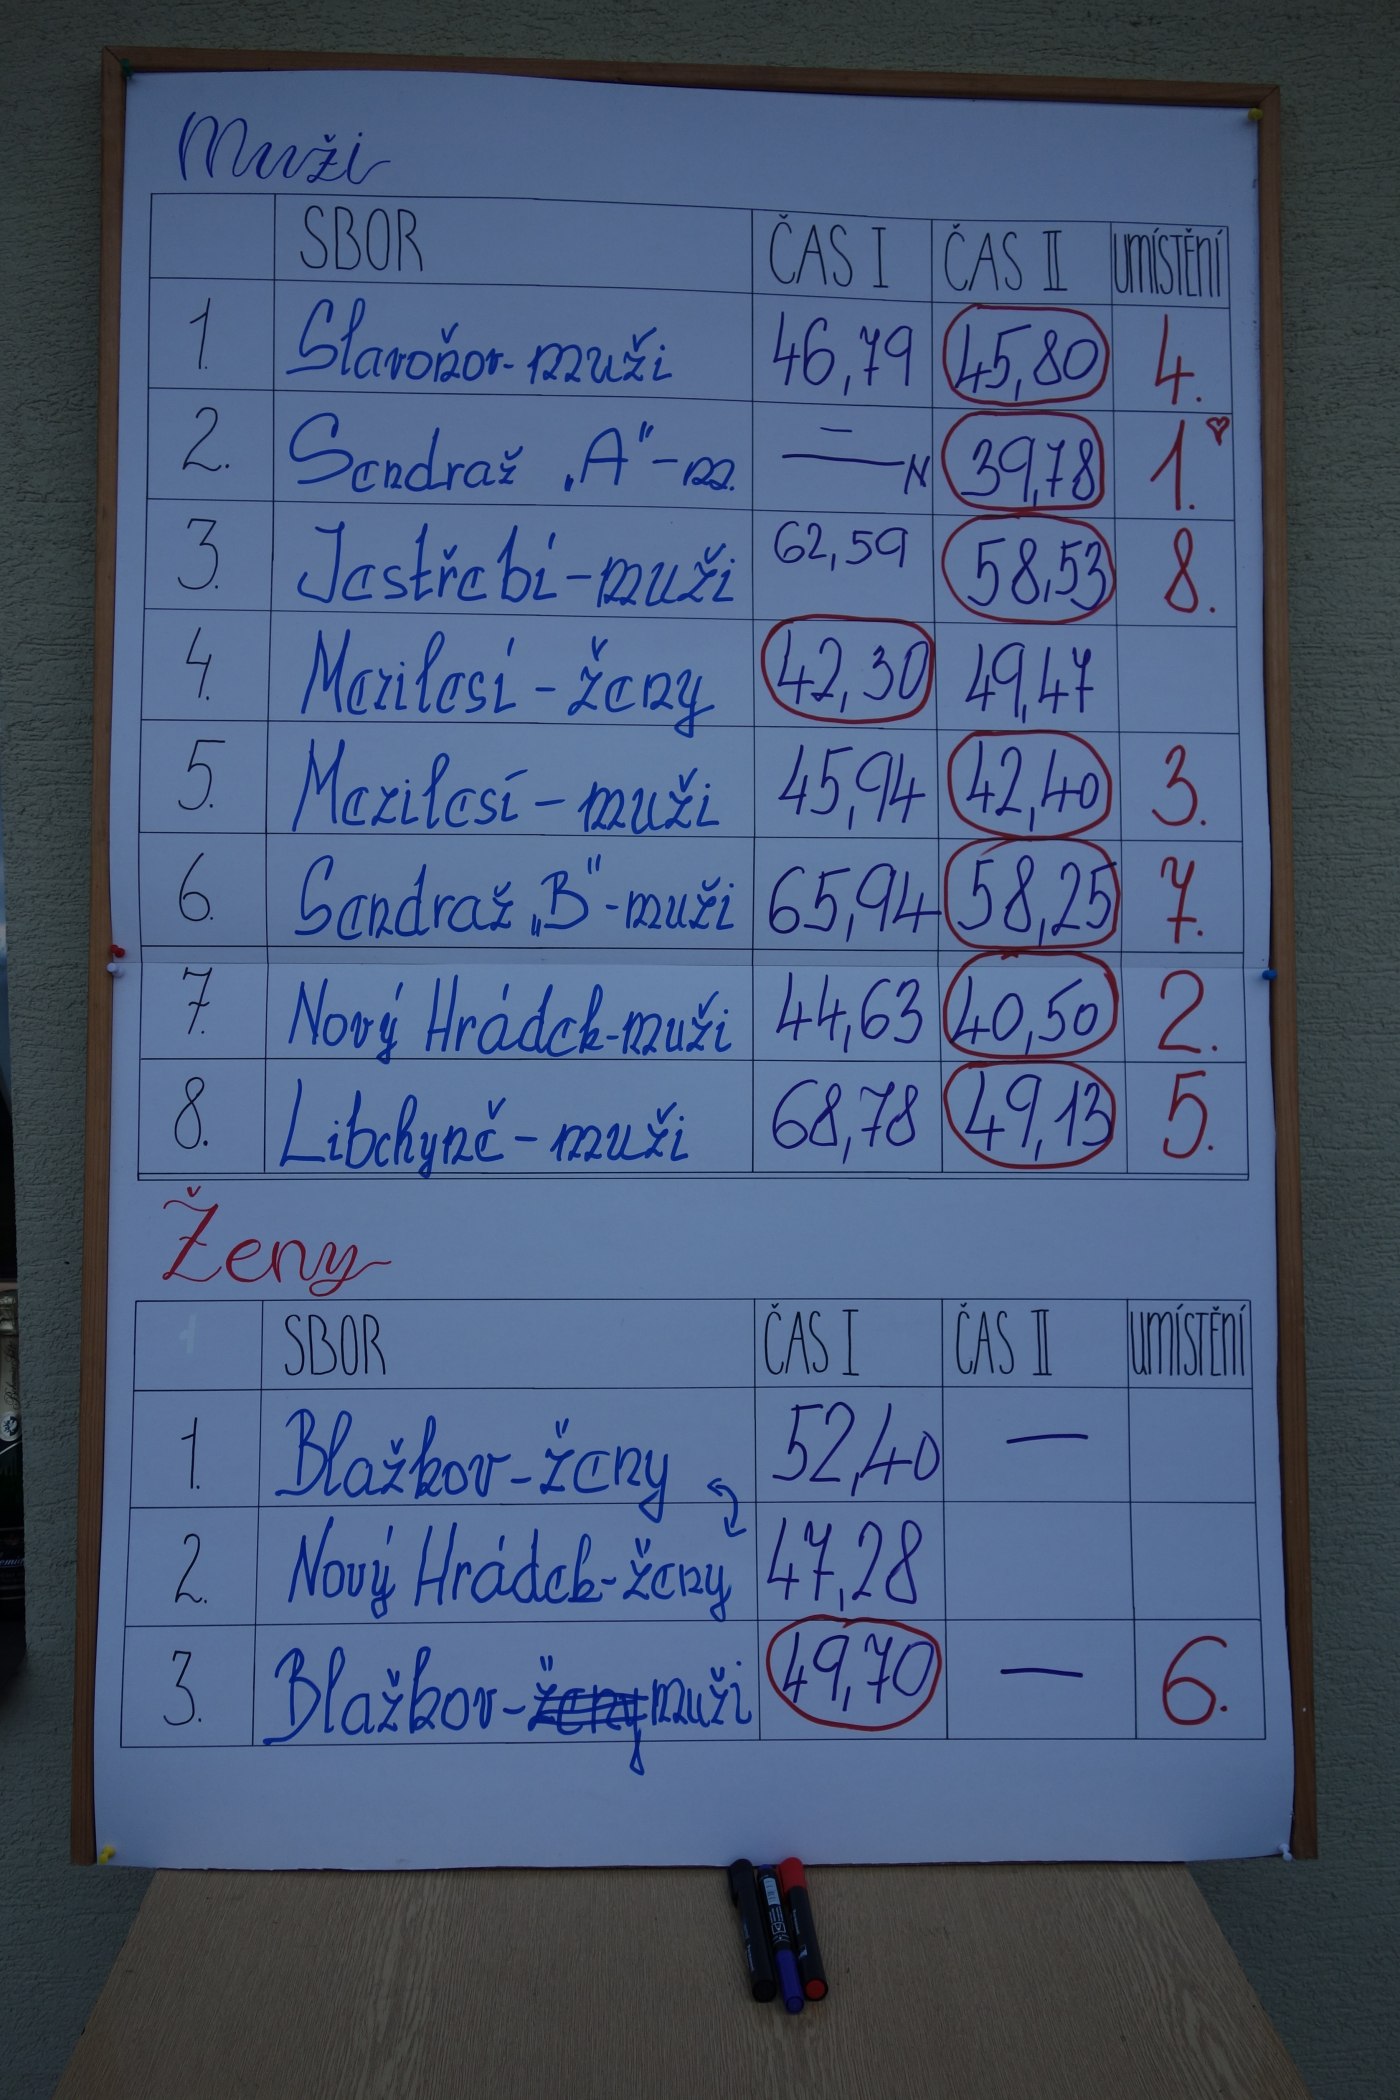 Muži
SBOR ČAS I ČAS II UMÍSTĚNÍ
1. Slavoňov - muži 46,79 45,80 4.
2. Sendraž „A" - m. — N 39,78 1.
3. Jestřebí - muži 62,59 58,53 8.
4. Mezilesí - ženy 42,30 49,47
5. Mezilesí - muži 45,94 42,40 3.
6. Sendraž „B" - muži 65,94 58,25 7.
7. Nový Hrádek - muži 44,63 40,50 2.
8. Libchyně - muži 68,78 49,13 5.
Ženy
SBOR ČAS I ČAS II UMÍSTĚNÍ
1. Blažkov - ženy 52,40 —
2. Nový Hrádek - ženy 47,28
3. Blažkov - ženy muži 49,70 — 6.